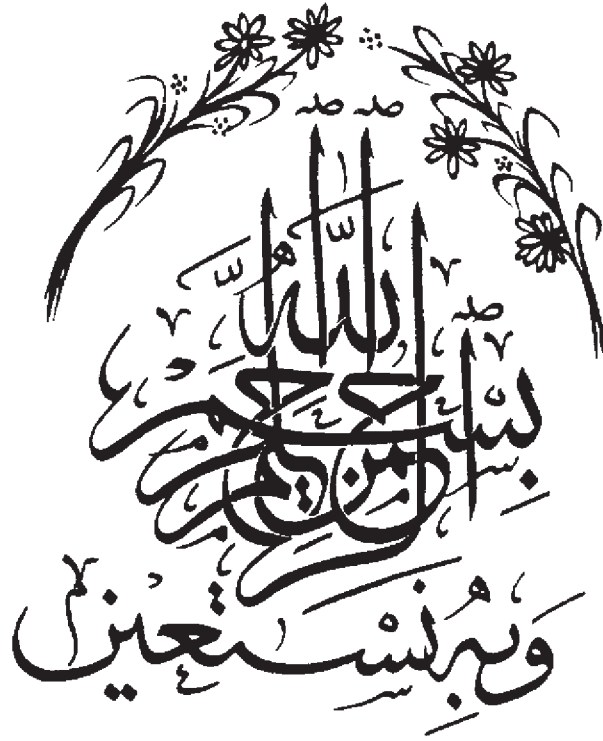 بِسْمِ اللّٰهِ الرَّحْمٰنِ الرَّحِيمِ
وَبِهِ نَسْتَعِين